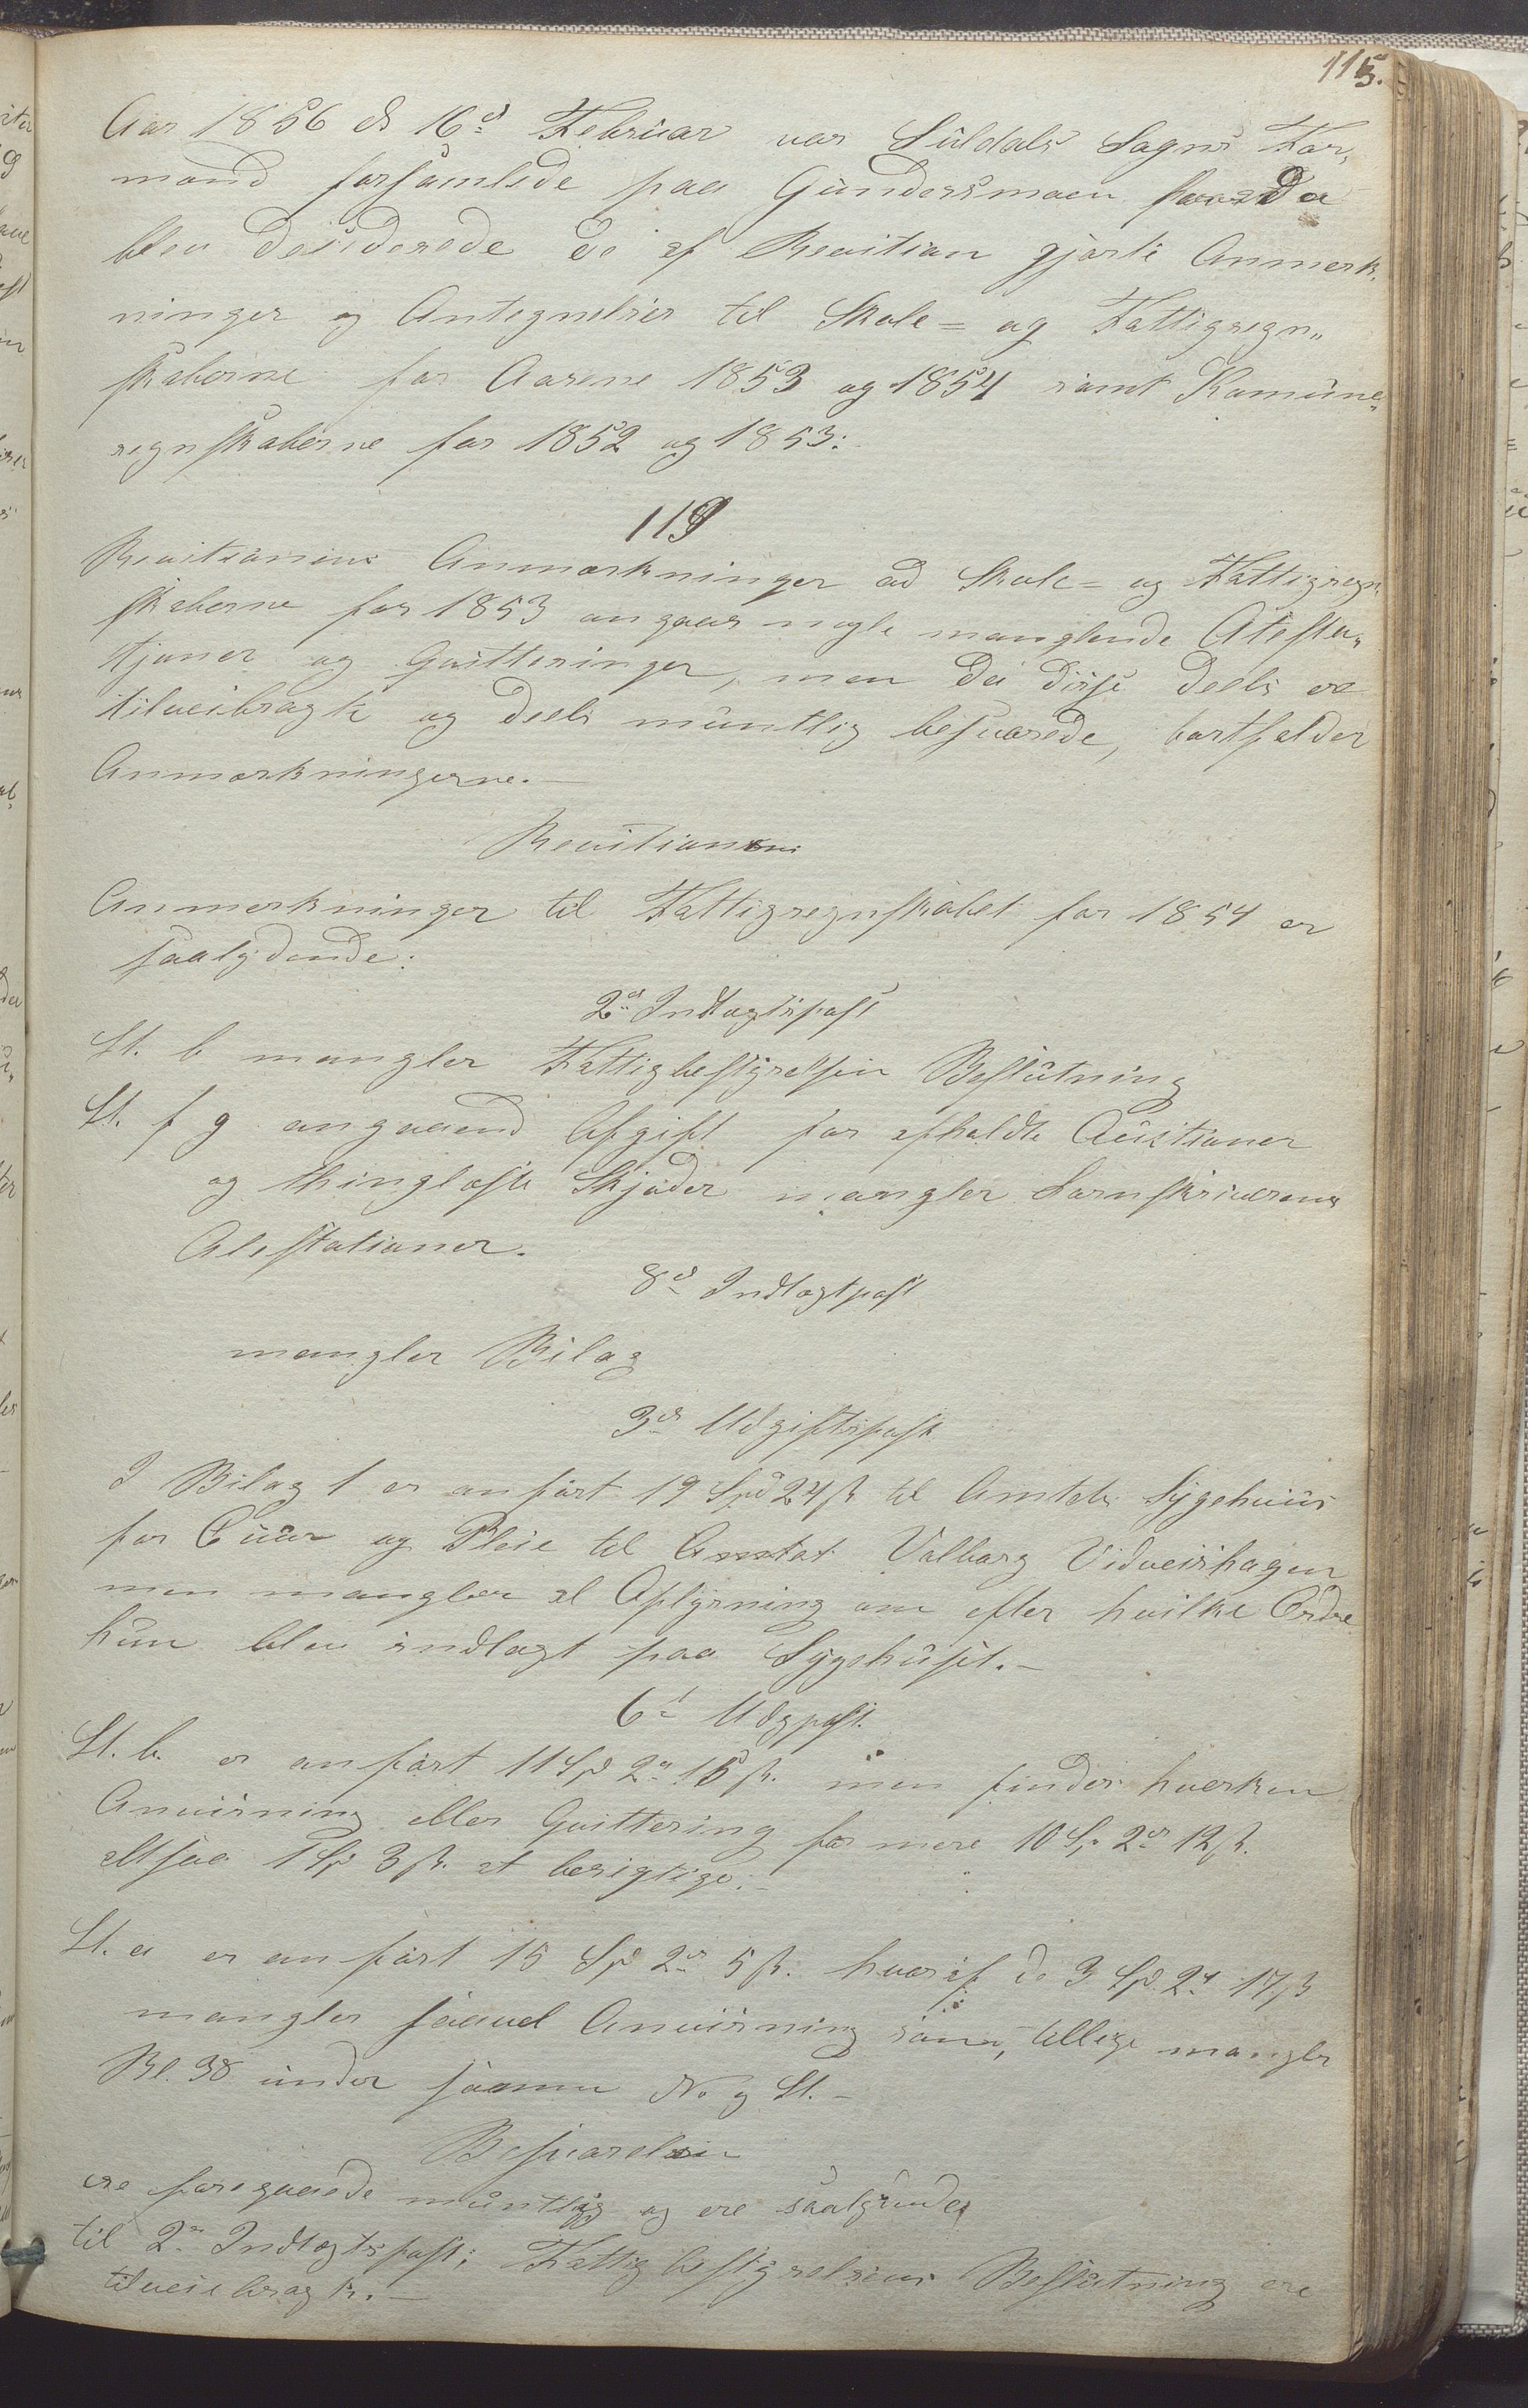 115.
Aar 1856 d 16d Februar var Suldals Sogns For„
mænd forsamlede paa Gundersmoen hvor Da
blev desiderede de af Revition gjorte Anmerk„
ninger og Antegnelser til Skole= og Fattigregn„
skaberne for Aarene 1853 og 1854 samt Komune„
regnskaberne for 1852 og 1853:
119
Revitionens Anmærkninger ad Skole= og Fattigregn„
skaberne for 1853 angaar nogle manglende Atesta„
tjoner og Qvitteringer, men da disse deels er
tilveibragte og deels muntlig besvarede, bortfalder
Anmærkningerne.—
Revitionens
Anmerkninger til Fattigregnskabet for 1854 er
saalydende:
2d Indtægtspost
Lt. b mangler Fattigbestyrelsens Beslutning
Lt. f g angaaend Afgift for afholdte Auctioner
og thinglæste Skjøder mangler Sornskriverens
Atestationer.
8d Indtægtpost
mangler Bilag
3d Udgiftspost
I Bilag 1 er anført 19 Spd 24 ß til Amtets Sygehuus
for Cuur og Pleie til Amtet Valborg Vidveishagen
men mangler al Oplysning om efter hvilke Ordre
hun blev indlagt paa Sygehuset.—
6d Udgpost.
Lt. b. er anført 11 Spd 2d 15 ß. men findes hverken
Anvisning eller Qvittering for mere 10 Sp 2d 12 ß.
altsaa 1 Spd 3 ß. at berigtige.—
Lt. a er anført 15 Spd 2d 5 ß. hvoraf de 3 Spd. 2d 17 ß
mangler saavel Anvisning som, tillige mangler
Bl. 38 under samme No og Lt.—
Besvarelsen
ere foregaaede muntlig og ere saalydende
til 2d Indtægtspost; Fattigbestyrelsens Beslutning ere
tilveiebragte.—